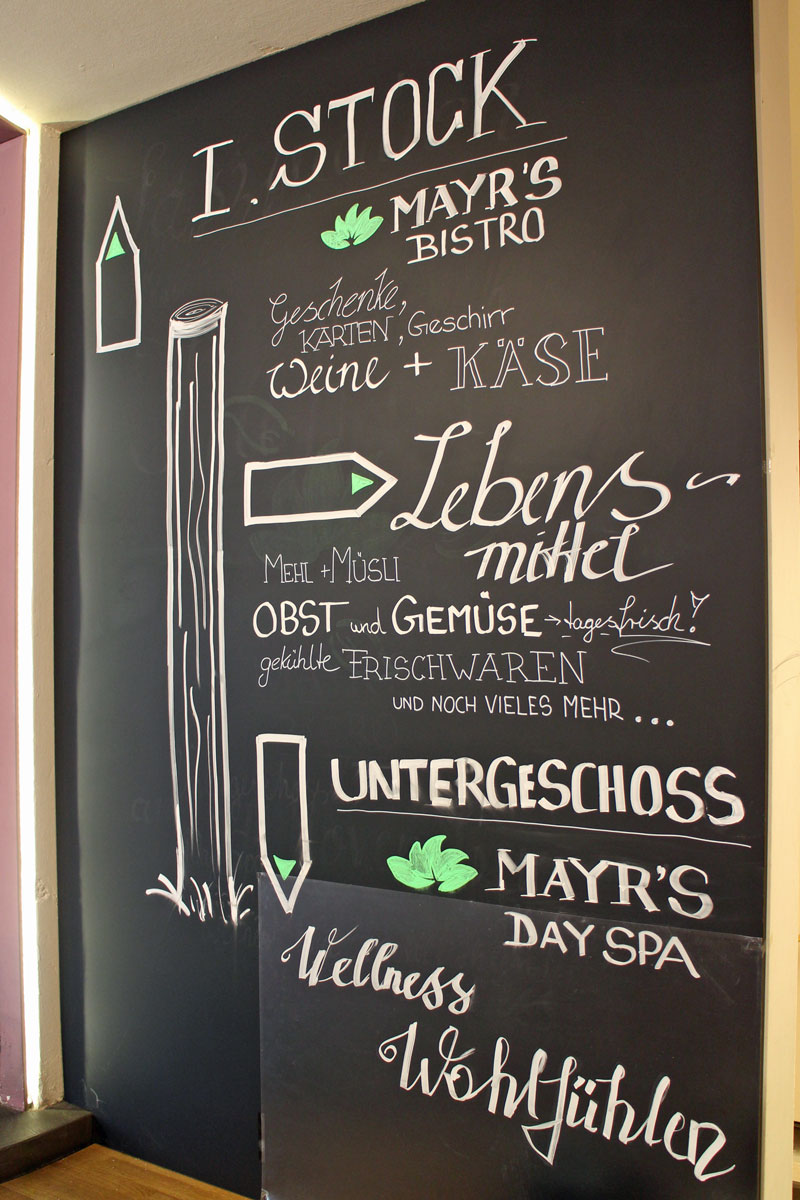 I. STOCK
MAYR'S
BISTRO
Geschenke,
KARTEN, Geschirr
Weine + KÄSE
Lebens-
mittel
MEHL + MÜSLI
OBST und GEMÜSE → tagesfrisch!
gekühlte FRISCHWAREN
UND NOCH VIELES MEHR ...
UNTERGESCHOSS
MAYR'S
DAY SPA
Wellness
Wohlfühlen